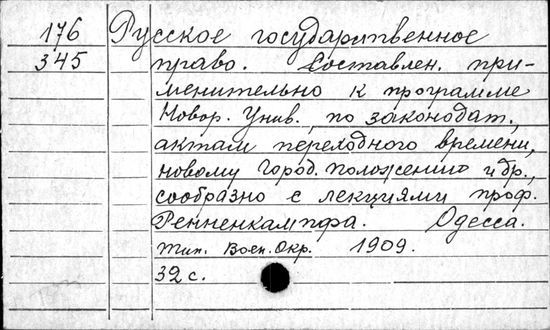 176 Русское государственное
345 право. Составлен. при-
менительно к программе
Новор. Унив., по законодат.
актам переходного времени,
новому Город. положению и др.,
сообразно с лекциями проф.
Ренненкампфа. Одесса.
Тип. Воен. Окр. 1909.
32 с.